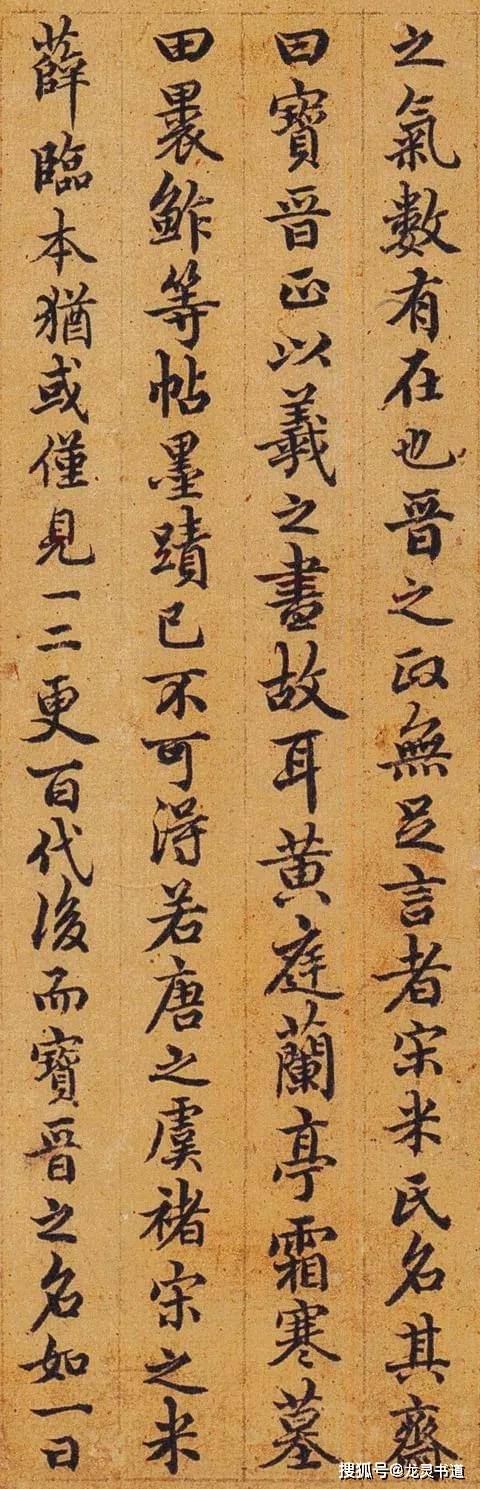 之氣數有在也晉之政無足言者宋米氏名其齋
曰寶晉正以羲之書故耳黃庭蘭亭霜寒墓
田裹鮓等帖墨蹟已不可得若唐之虞褚宋之米
薛臨本猶或僅見一二更百代後而寶晉之名如一日
搜狐号@龙灵书道